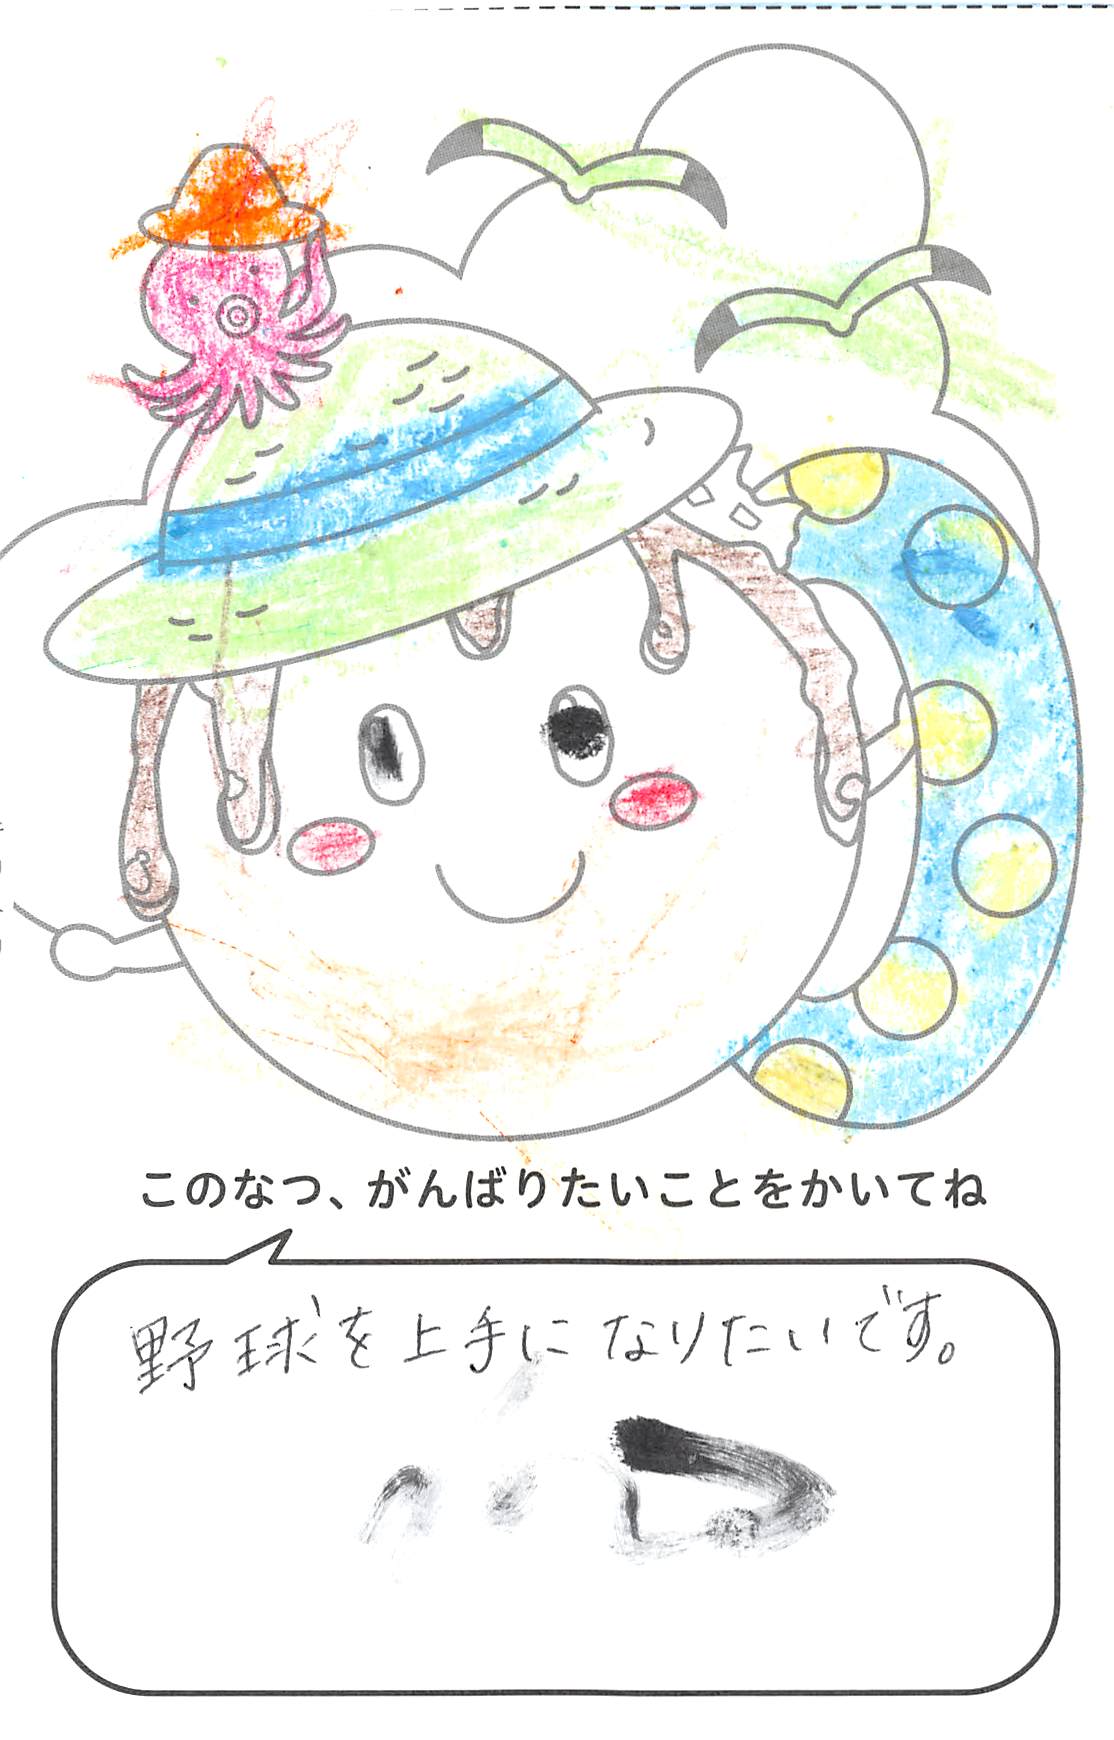 このなつ、がんばりたいことをかいてね
野球を上手になりたいです。